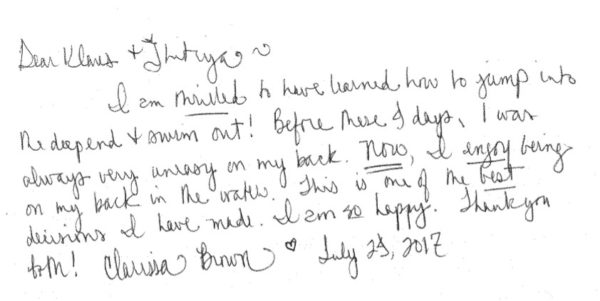 Dear Klaus + Jhutriya ~
I am thrilled to have learned how to jump into
the deepend & swim out! Before these 5 days, I was
always very uneasy on my back. Now, I enjoy being
on my back in the water. This is one of the best
decisions I have made. I am so happy. Thank you
both! Clarissa Brown ♡ July 25, 2017